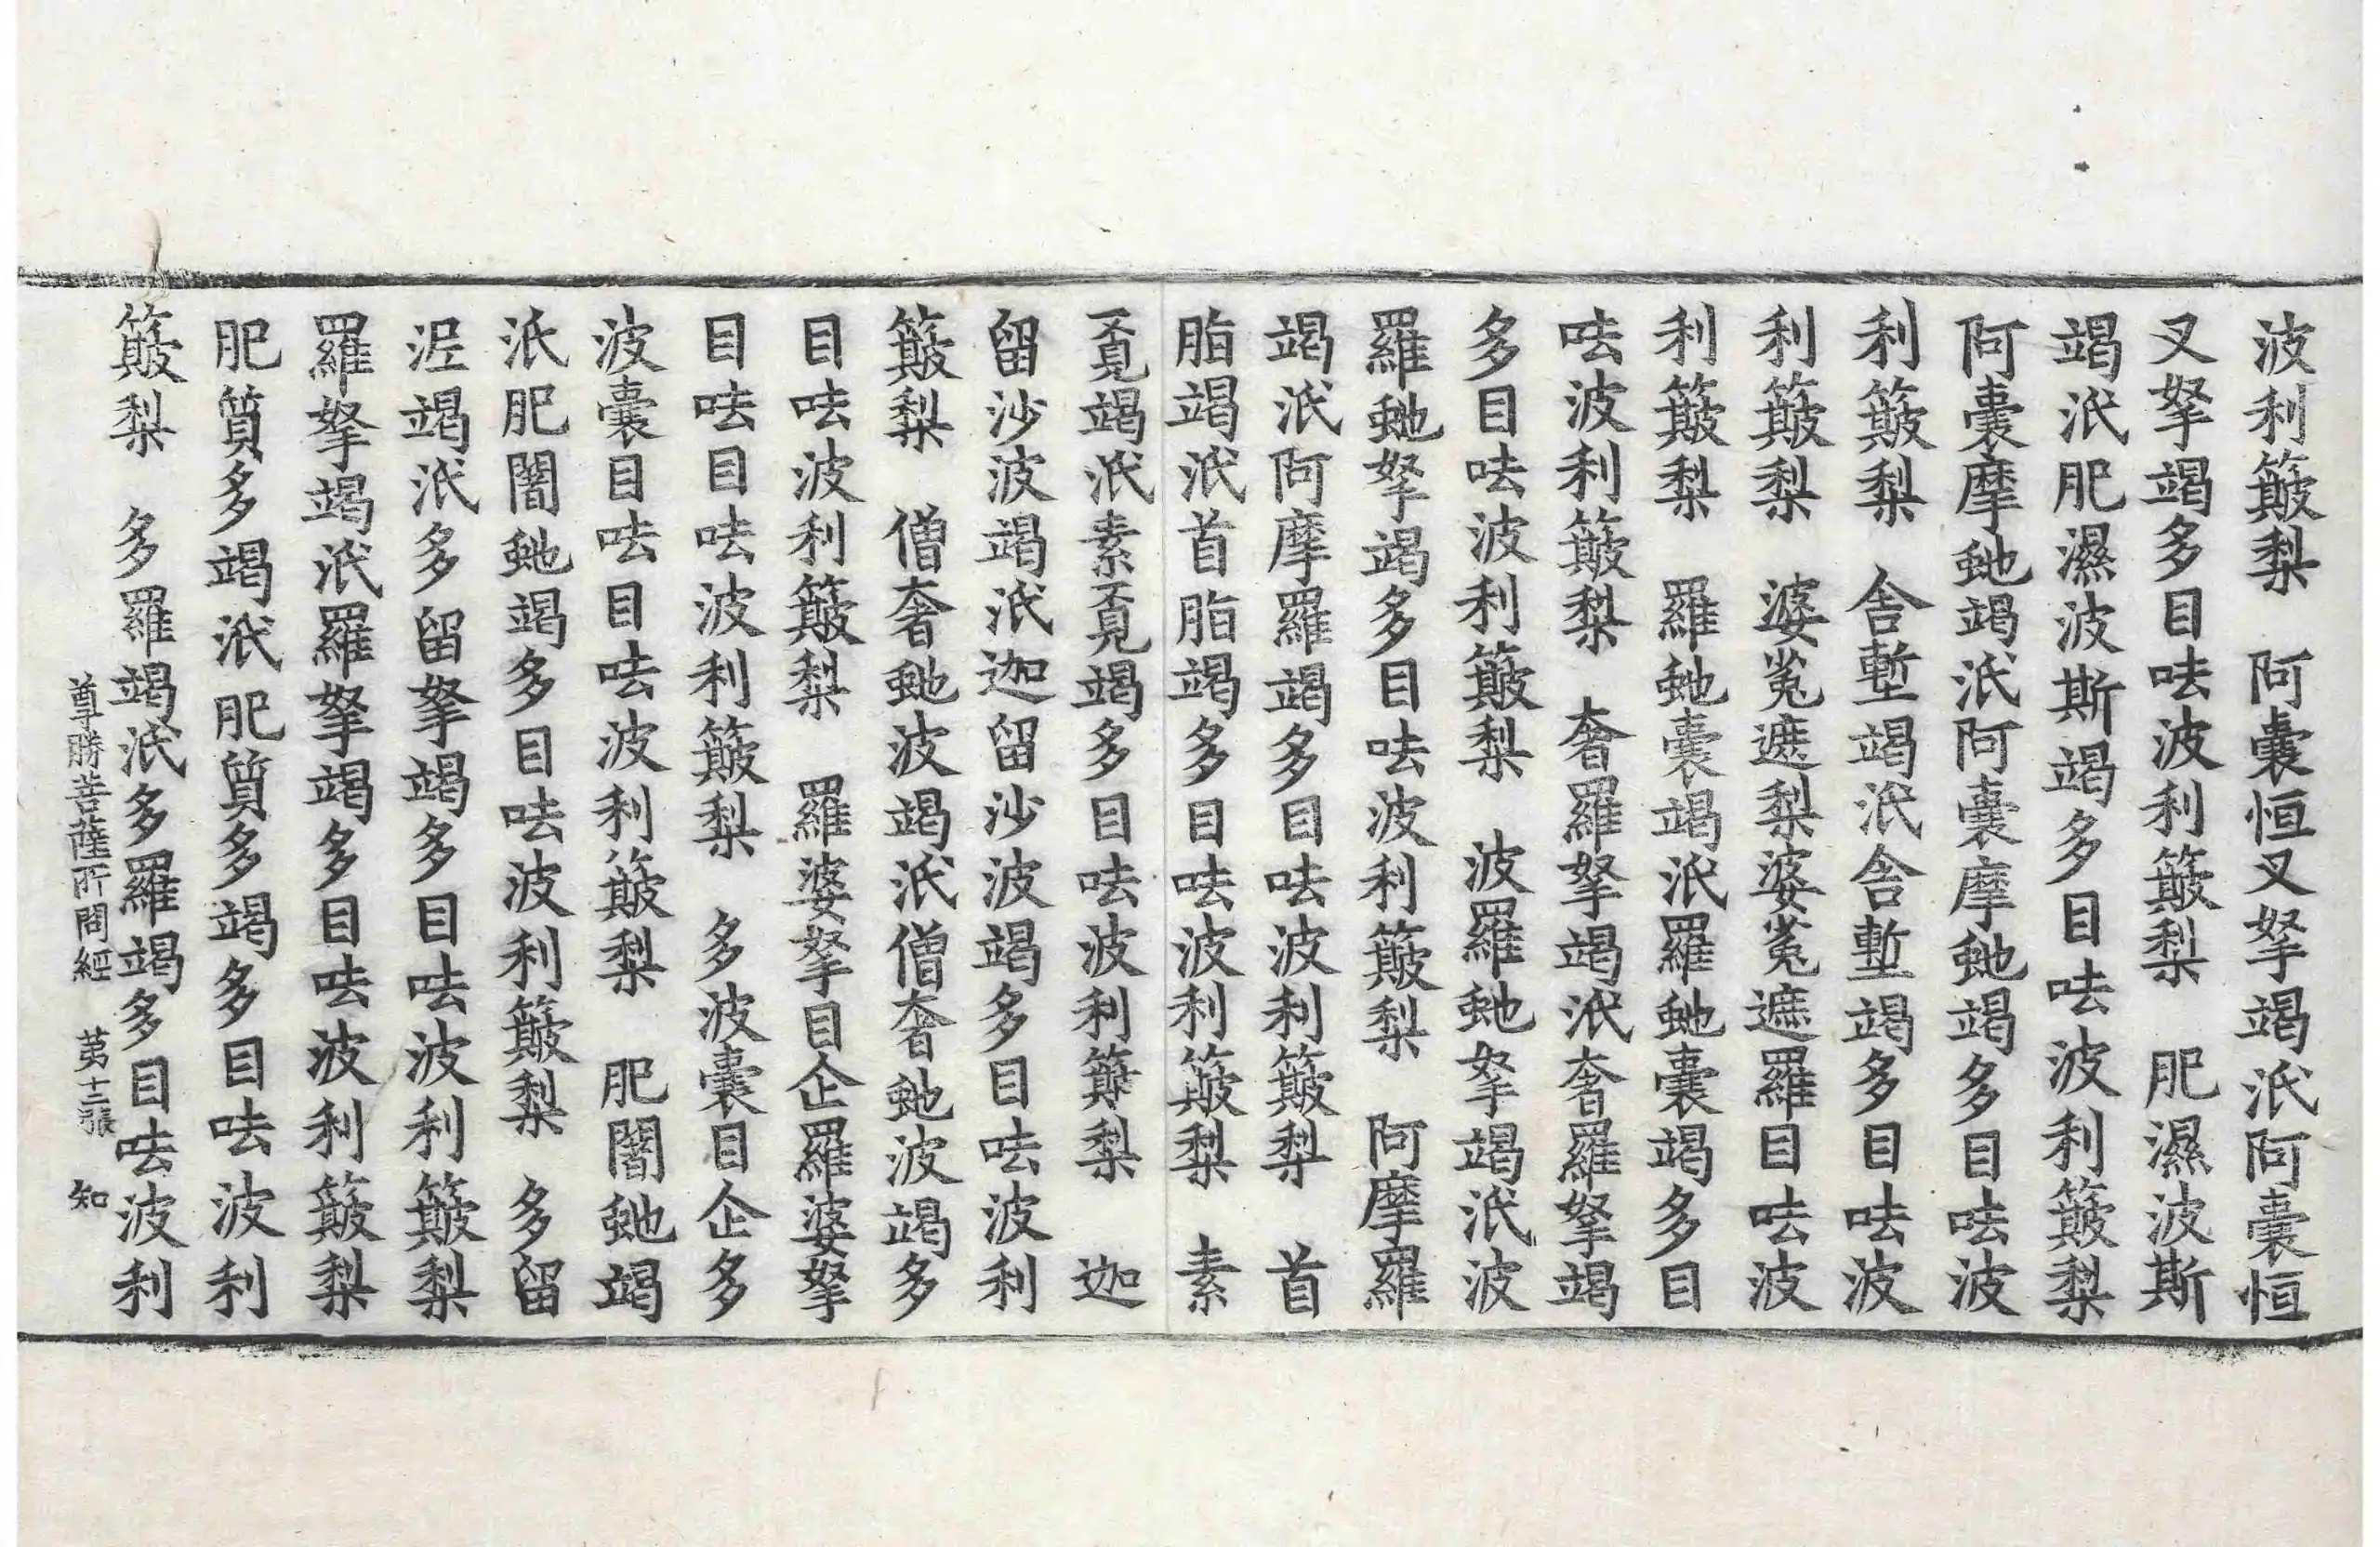 波利簸梨　阿囊恒叉拏竭泜阿囊恒
叉拏竭多目呿波利簸梨　肥濕波斯
竭泜肥濕波斯竭多目呿波利簸梨
阿囊摩虵竭泜阿囊摩虵竭多目呿波
利簸梨　舍墼竭泜舍墼竭多目呿波
利簸梨　婆㝹遮梨婆㝹遮羅目呿波
利簸梨　羅虵囊竭泜羅虵囊竭多目
呿波利簸梨　奢羅拏竭泜奢羅拏竭
多目呿波利簸梨　波羅虵拏竭泜波
羅虵拏竭多目呿波利簸梨　阿摩羅
竭泜阿摩羅竭多目呿波利簸梨　首
脂竭泜首脂竭多目呿波利簸梨　素
覔竭泜素覔竭多目呿波利簸梨　迦
留沙波竭泜迦留沙波竭多目呿波利
簸梨　僧奢虵波竭泜僧奢虵波竭多
目呿波利簸梨　羅婆拏目企羅婆拏
目呿目呿波利簸梨　多波囊目企多
波囊目呿目呿波利簸梨　肥闍虵竭
泜肥闍虵竭多目呿波利簸梨　多留
泥竭泜多留拏竭多目呿波利簸梨
羅拏竭泜羅拏竭多目呿波利簸梨
肥質多竭泜肥質多竭多目呿波利
簸梨　多羅竭泜多羅竭多目呿波利
尊勝菩薩所問經　苐十二張　知